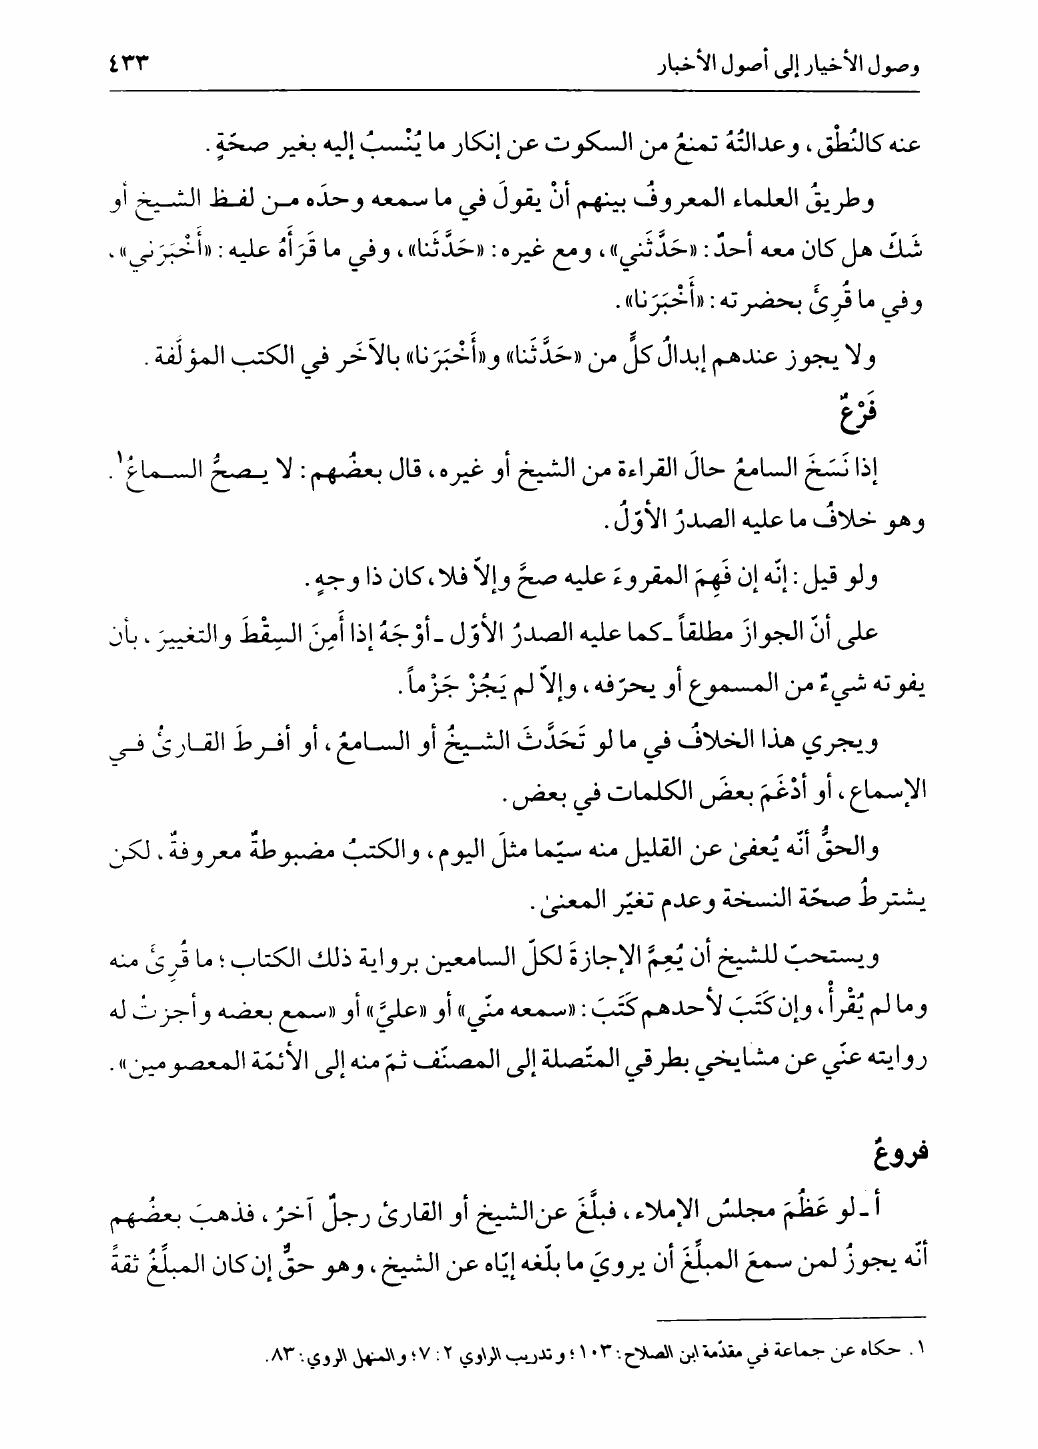 وصول الأخيار إلى أصول الأخبار ٤٣٣
عنه كالنُطْق، وعدالتُهُ تمنعُ من السكوت عن إنكار ما يُنْسبُ إليه بغير صحّةٍ.
وطريقُ العلماء المعروفُ بينهم أنْ يقولَ في ما سمعه وحدَه من لفظ الشيخ أو
شكّ هل كان معه أحدٌ: «حَدَّثَني»، ومع غيره: «حَدَّثَنا»، وفي ما قَرَأهُ عليه: «أَخْبَرَني»،
وفي ما قُرِئَ بحضرته: «أَخْبَرَنا».
ولا يجوز عندهم إبدالُ كلٍّ من «حَدَّثَنا» و«أَخْبَرَنا» بالآخَر في الكتب المؤلَّفة.
فَرْعٌ
إذا نَسَخَ السامعُ حالَ القراءة من الشيخ أو غيره، قال بعضُهم: لا يصحُّ السماعُ١.
وهو خلافُ ما عليه الصدرُ الأوّلُ.
ولو قيل: إنّه إن فَهِمَ المقروءَ عليه صحَّ وإلاّ فلا، كان ذا وجهٍ.
على أنّ الجوازَ مطلقاً ـ كما عليه الصدرُ الأوّل ـ أوْجَهُ إذا أمِنَ السِقْطَ والتغييرَ، بأن
يفوته شيءٌ من المسموع أو يحرّفه، وإلاّ لم يَجُزْ جَزْماً.
ويجري هذا الخلافُ في ما لو تَحَدَّثَ الشيخُ أو السامعُ، أو أفرطَ القارئُ في
الإسماع، أو أدْغَمَ بعضَ الكلمات في بعض.
والحقُّ أنّه يُعفىٰ عن القليل منه سيّما مثلَ اليوم، والكتبُ مضبوطةٌ معروفةٌ، لكن
يشترطُ صحّة النسخة وعدم تغيّر المعنىٰ.
ويستحبّ للشيخ أن يُعِمَّ الإجازةَ لكلّ السامعين برواية ذلك الكتاب؛ ما قُرِئَ منه
وما لم يُقْرأْ، وإن كَتَبَ لأحدهم كَتَبَ: «سمعه منّي» أو «عليَّ» أو «سمع بعضه وأجزتُ له
روايته عنّي عن مشايخي بطرقي المتّصلة إلى المصنّف ثمّ منه إلى الأئمّة المعصومين».
فروعٌ
أ ـ لو عَظُمَ مجلسُ الإملاء، فبلَّغَ عن الشيخ أو القارئ رجلٌ آخرُ، فذهبَ بعضُهم
أنّه يجوزُ لمن سمعَ المبلَّغَ أن يرويَ ما بلّغه إيّاه عن الشيخ، وهو حقٌّ إن كان المبلِّغُ ثقةً
١. حكاه عن جماعة في مقدّمة ابن الصلاح: ١٠٣؛ و تدريب الراوي ٢: ٧؛ والمنهل الروي: ٨٣.